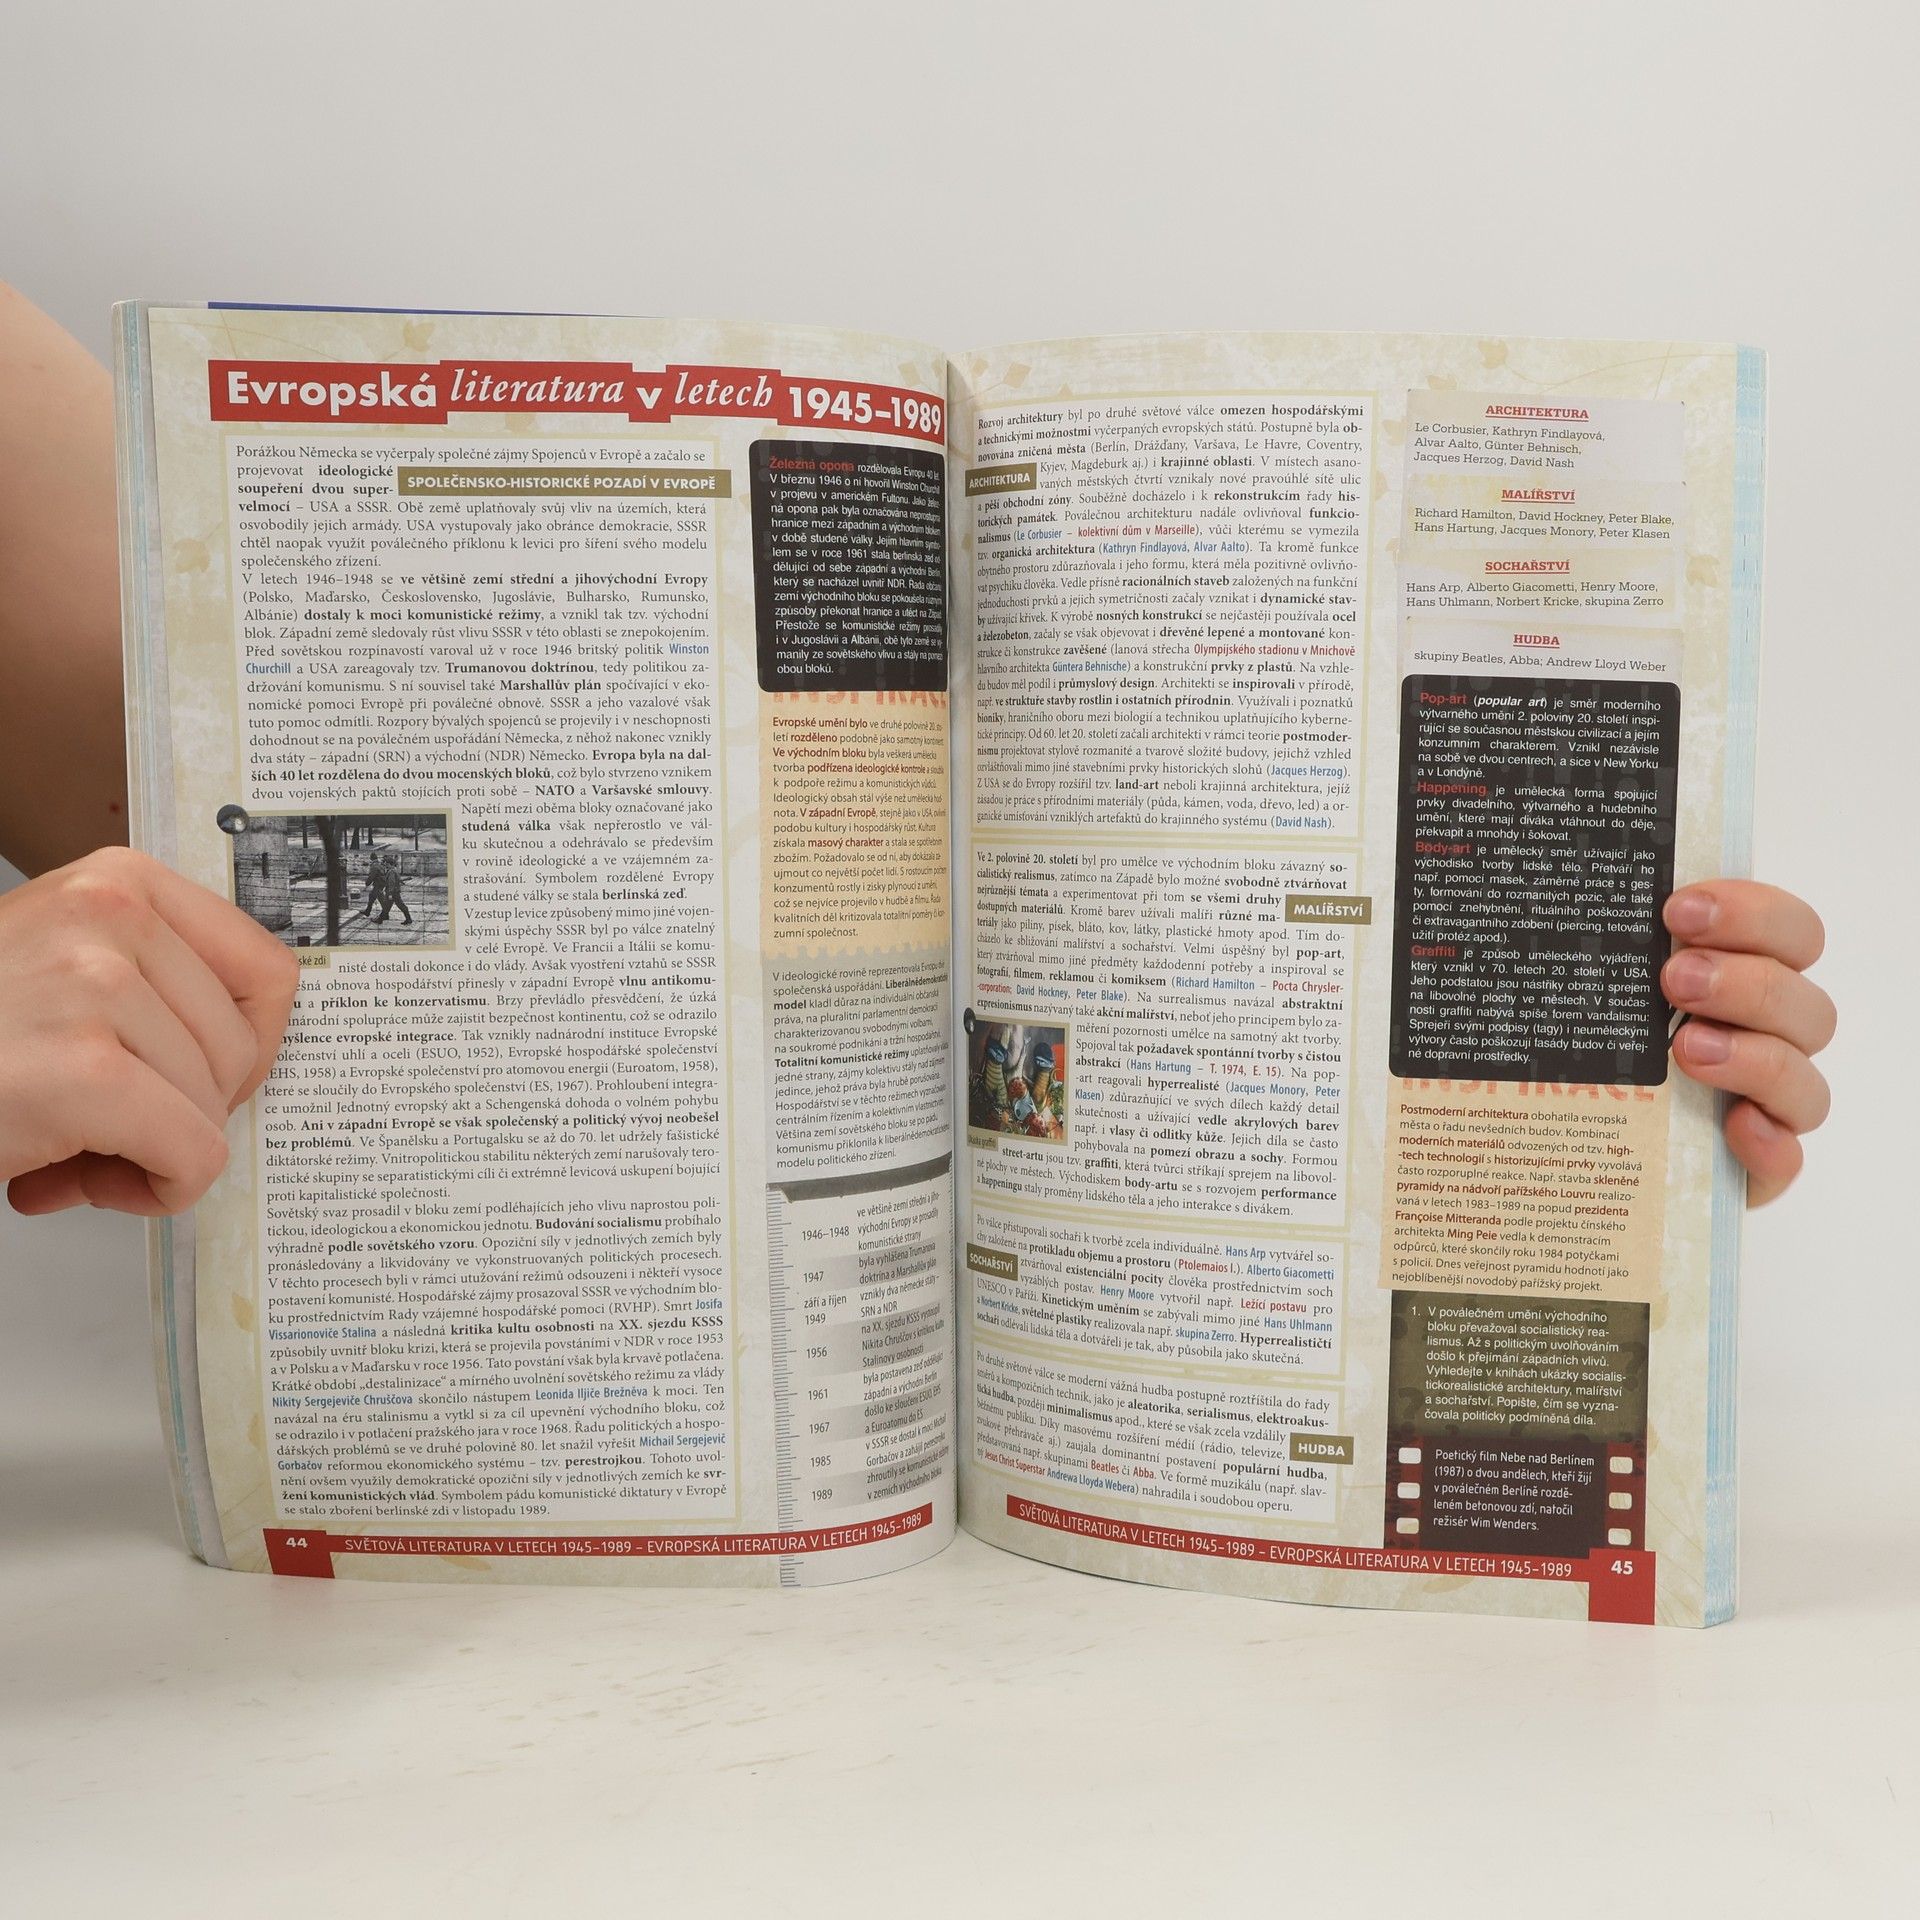 Evropská literatura v letech 1945–1989
Porážkou Německa se vyčerpaly společné zájmy Spojenců v Evropě a začalo se
projevovat ideologické
SPOLEČENSKO-HISTORICKÉ POZADÍ V EVROPĚ
soupeření dvou super-
velmocí – USA a SSSR. Obě země uplatňovaly svůj vliv na územích, která
osvobodily jejich armády. USA vystupovaly jako obránce demokracie, SSSR
chtěl naopak využít poválečného příklonu k levici pro šíření svého modelu
společenského zřízení.
V letech 1946–1948 se ve většině zemí střední a jihovýchodní Evropy
(Polsko, Maďarsko, Československo, Jugoslávie, Bulharsko, Rumunsko,
Albánie) dostaly k moci komunistické režimy, a vznikl tak tzv. východní
blok. Západní země sledovaly růst vlivu SSSR v této oblasti se znepokojením.
Před sovětskou rozpínavostí varoval už v roce 1946 britský politik Winston
Churchill a USA zareagovaly tzv. Trumanovou doktrínou, tedy politikou za-
držování komunismu. S ní souvisel také Marshallův plán spočívající v eko-
nomické pomoci Evropě při poválečné obnově. SSSR a jeho vazalové však
tuto pomoc odmítli. Rozpory bývalých spojenců se projevily i v neschopnosti
dohodnout se na poválečném uspořádání Německa, z něhož nakonec vznikly
dva státy – západní (SRN) a východní (NDR) Německo. Evropa byla na dal-
ších 40 let rozdělena do dvou mocenských bloků, což bylo stvrzeno vznikem
dvou vojenských paktů stojících proti sobě – NATO a Varšavské smlouvy.
Napětí mezi oběma bloky označované jako
studená válka však nepřerostlo ve vál-
ku skutečnou a odehrávalo se především
v rovině ideologické a ve vzájemném za-
strašování. Symbolem rozdělené Evropy
a studené války se stala berlínská zeď.
Vzestup levice způsobený mimo jiné vojen-
skými úspěchy SSSR byl po válce znatelný
v celé Evropě. Ve Francii a Itálii se komu-
ské zdi
nisté dostali dokonce i do vlády. Avšak vyostření vztahů se SSSR
obnova hospodářství přinesly v západní Evropě vlnu antikomu-
a příklon ke konzervatismu. Brzy převládlo přesvědčení, že úzká
spolupráce může zajistit bezpečnost kontinentu, což se odrazilo
evropské integrace. Tak vznikly nadnárodní instituce Evropské
uhlí a oceli (ESUO, 1952), Evropské hospodářské společenství
EHS, 1958) a Evropské společenství pro atomovou energii (Euroatom, 1958),
které se sloučily do Evropského společenství (ES, 1967). Prohloubení integra-
ce umožnil Jednotný evropský akt a Schengenská dohoda o volném pohybu
osob. Ani v západní Evropě se však společenský a politický vývoj neobešel
bez problémů. Ve Španělsku a Portugalsku se až do 70. let udržely fašistické
diktátorské režimy. Vnitropolitickou stabilitu některých zemí narušovaly tero-
ristické skupiny se separatistickými cíli či extrémně levicová uskupení bojující
proti kapitalistické společnosti.
Sovětský svaz prosadil v bloku zemí podléhajících jeho vlivu naprostou poli-
tickou, ideologickou a ekonomickou jednotu. Budování socialismu probíhalo
výhradně podle sovětského vzoru. Opoziční síly v jednotlivých zemích byly
pronásledovány a likvidovány ve vykonstruovaných politických procesech.
V těchto procesech byli v rámci utužování režimů odsouzeni i někteří vysoce
postavení komunisté. Hospodářské zájmy prosazoval SSSR ve východním blo-
ku prostřednictvím Rady vzájemné hospodářské pomoci (RVHP). Smrt Josifa
Vissarionoviče Stalina a následná kritika kultu osobnosti na XX. sjezdu KSSS
způsobily uvnitř bloku krizi, která se projevila povstáními v NDR v roce 1953
a v Polsku a Maďarsku v roce 1956. Tato povstání však byla krvavě potlačena.
Krátké období „destalinizace" a mírného uvolnění sovětského režimu za vlády
Nikity Sergejeviče Chruščova skončilo nástupem Leonida Iljiče Brežněva k moci. Ten
navázal na éru stalinismu a vytkl si za cíl upevnění východního bloku, což
se odrazilo i v potlačení pražského jara v roce 1968. Řadu politických a hospo-
dářských problémů se ve druhé polovině 80. let snažil vyřešit Michail Sergejevič
Gorbačov reformou ekonomického systému – tzv. perestrojkou. Tohoto uvol-
nění ovšem využily demokratické opoziční síly v jednotlivých zemích ke svr-
žení komunistických vlád. Symbolem pádu komunistické diktatury v Evropě
se stalo zboření berlínské zdi v listopadu 1989.
Železná opona rozdělovala Evropu 40 let.
V březnu 1946 o ní hovořil Winston Churchill
v projevu v americkém Fultonu. Jako želez-
ná opona pak byla označována neprostupná
hranice mezi západním a východním blokem
v době studené války. Jejím hlavním symbo-
lem se v roce 1961 stala berlínská zeď od-
dělující od sebe západní a východní Berlín,
který se nacházel uvnitř NDR. Řada občanů
zemí východního bloku se pokoušela různými
způsoby překonat hranice a utéct na Západ.
Přestože se komunistické režimy prosadily
i v Jugoslávii a Albánii, obě tyto země se vy-
manily ze sovětského vlivu a stály na pomezí
obou bloků.
INSPIRACE
Evropské umění bylo ve druhé polovině 20. sto-
letí rozděleno podobně jako samotný kontinent.
Ve východním bloku byla veškerá umělecká
tvorba podřízena ideologické kontrole a sloužila
k podpoře režimu a komunistických vůdců.
Ideologický obsah stál výše než umělecká hod-
nota. V západní Evropě, stejně jako v USA, ovlivnil
podobu kultury i hospodářský růst. Kultura
získala masový charakter a stala se spotřebním
zbožím. Požadovalo se od ní, aby dokázala za-
ujmout co největší počet lidí. S rostoucím počtem
konzumentů rostly i zisky plynoucí z umění,
což se nejvíce projevilo v hudbě a filmu. Řada
kvalitních děl kritizovala totalitní poměry či kon-
zumní společnost.
V ideologické rovině reprezentovala Evropu dvě
společenská uspořádání. Liberálnědemokratický
model kladl důraz na individuální občanská
práva, na pluralitní parlamentní demokracii
charakterizovanou svobodnými volbami,
na soukromé podnikání a tržní hospodářství.
Totalitní komunistické režimy uplatňovaly vládu
jedné strany, zájmy kolektivu stály nad zájmem
jedince, jehož práva byla hrubě porušována.
Hospodářství se v těchto režimech vyznačovalo
centrálním řízením a kolektivním vlastnictvím.
Většina zemí sovětského bloku se po pádu
komunismu přiklonila k liberálnědemokratickému
modelu politického zřízení.
1946–1948 ve většině zemí střední a jiho-
východní Evropy se prosadily
komunistické strany
1947 byla vyhlášena Trumanova
doktrína a Marshallův plán
září a říjen vznikly dva německé státy –
1949 SRN a NDR
1956 na XX. sjezdu KSSS vystoupil
Nikita Chruščov s kritikou kultu
Stalinovy osobnosti
1961 byla postavena zeď oddělující
západní a východní Berlín
1967 došlo ke sloučení ESUO, EHS
a Euroatomu do ES
1985 v SSSR se dostal k moci Michail
Gorbačov a zahájil perestrojku
1989 zhroutily se komunistické režimy
v zemích východního bloku
44 SVĚTOVÁ LITERATURA V LETECH 1945–1989 – EVROPSKÁ LITERATURA V LETECH 1945–1989
Rozvoj architektury byl po druhé světové válce omezen hospodářskými
a technickými možnostmi vyčerpaných evropských států. Postupně byla ob-
novována zničená města (Berlín, Drážďany, Varšava, Le Havre, Coventry,
Kyjev, Magdeburk aj.) i krajinné oblasti. V místech asano-
ARCHITEKTURA
vaných městských čtvrtí vznikaly nové pravoúhlé sítě ulic
a pěší obchodní zóny. Souběžně docházelo i k rekonstrukcím řady his-
torických památek. Poválečnou architekturu nadále ovlivňoval funkcio-
nalismus (Le Corbusier – kolektivní dům v Marseille), vůči kterému se vymezila
tzv. organická architektura (Kathryn Findlayová, Alvar Aalto). Ta kromě funkce
obytného prostoru zdůrazňovala i jeho formu, která měla pozitivně ovlivňo-
vat psychiku člověka. Vedle přísně racionálních staveb založených na funkční
jednoduchosti prvků a jejich symetričnosti začaly vznikat i dynamické stav-
by užívající křivek. K výrobě nosných konstrukcí se nejčastěji používala ocel
a železobeton, začaly se však objevovat i dřevěné lepené a montované kon-
strukce či konstrukce zavěšené (lanová střecha Olympijského stadionu v Mnichově
hlavního architekta Güntera Behnische) a konstrukční prvky z plastů. Na vzhle-
du budov měl podíl i průmyslový design. Architekti se inspirovali v přírodě,
např. ve struktuře stavby rostlin i ostatních přírodnin. Využívali i poznatků
bioniky, hraničního oboru mezi biologií a technikou uplatňujícího kyberne-
tické principy. Od 60. let 20. století začali architekti v rámci teorie postmoder-
nismu projektovat stylově rozmanité a tvarově složité budovy, jejichž vzhled
ozvláštňovali mimo jiné stavebními prvky historických slohů (Jacques Herzog).
Z USA se do Evropy rozšířil tzv. land-art neboli krajinná architektura, jejíž
zásadou je práce s přírodními materiály (půda, kámen, voda, dřevo, led) a or-
ganické umísťování vzniklých artefaktů do krajinného systému (David Nash).
Ve 2. polovině 20. století byl pro umělce ve východním bloku závazný so-
cialistický realismus, zatímco na Západě bylo možné svobodně ztvárňovat
nejrůznější témata a experimentovat při tom se všemi druhy
MALÍŘSTVÍ
dostupných materiálů. Kromě barev užívali malíři různé ma-
teriály jako piliny, písek, bláto, kov, látky, plastické hmoty apod. Tím do-
cházelo ke sbližování malířství a sochařství. Velmi úspěšný byl pop-art,
který ztvárňoval mimo jiné předměty každodenní potřeby a inspiroval se
fotografií, filmem, reklamou či komiksem (Richard Hamilton – Pocta Chrysler-
-corporation; David Hockney, Peter Blake). Na surrealismus navázal abstraktní
expresionismus nazývaný také akční malířství, neboť jeho principem bylo za-
měření pozornosti umělce na samotný akt tvorby.
Spojoval tak požadavek spontánní tvorby s čistou
abstrakcí (Hans Hartung – T. 1974, E. 15). Na pop-
-art reagovali hyperrealisté (Jacques Monory, Peter
Klasen) zdůrazňující ve svých dílech každý detail
skutečnosti a užívající vedle akrylových barev
např. i vlasy či odlitky kůže. Jejich díla se často
pohybovala na pomezí obrazu a sochy. Formou
(Ukázka graffiti)
street-artu jsou tzv. graffiti, která tvůrci stříkají sprejem na libovol-
né plochy ve městech. Východiskem body-artu se s rozvojem performance
a happeningu staly proměny lidského těla a jeho interakce s divákem.
Po válce přistupovali sochaři k tvorbě zcela individuálně. Hans Arp vytvářel so-
chy založené na protikladu objemu a prostoru (Ptolemaios I.). Alberto Giacometti
SOCHAŘSTVÍ
ztvárňoval existenciální pocity člověka prostřednictvím soch
vyzáblých postav. Henry Moore vytvořil např. Ležící postavu pro
UNESCO v Paříži. Kinetickým uměním se zabývali mimo jiné Hans Uhlmann
a Norbert Kricke, světelné plastiky realizovala např. skupina Zerro. Hyperrealističtí
sochaři odlévali lidská těla a dotvářeli je tak, aby působila jako skutečná.
Po druhé světové válce se moderní vážná hudba postupně roztříštila do řady
směrů a kompozičních technik, jako je aleatorika, serialismus, elektroakus-
tická hudba, později minimalismus apod., které se však zcela vzdálily
HUDBA
běžnému publiku. Díky masovému rozšíření médií (rádio, televize,
zvukové přehrávače aj.) zaujala dominantní postavení populární hudba,
představovaná např. skupinami Beatles či Abba. Ve formě muzikálu (např. slav-
ný Jesus Christ Superstar Andrewa Lloyda Webera) nahradila i soudobou operu.
ARCHITEKTURA
Le Corbusier, Kathryn Findlayová,
Alvar Aalto, Günter Behnisch,
Jacques Herzog, David Nash
MALÍŘSTVÍ
Richard Hamilton, David Hockney, Peter Blake,
Hans Hartung, Jacques Monory, Peter Klasen
SOCHAŘSTVÍ
Hans Arp, Alberto Giacometti, Henry Moore,
Hans Uhlmann, Norbert Kricke, skupina Zerro
HUDBA
skupiny Beatles, Abba; Andrew Lloyd Weber
Pop-art (popular art) je směr moderního
výtvarného umění 2. poloviny 20. století inspi-
rující se současnou městskou civilizací a jejím
konzumním charakterem. Vznikl nezávisle
na sobě ve dvou centrech, a sice v New Yorku
a v Londýně.
Happening je umělecká forma spojující
prvky divadelního, výtvarného a hudebního
umění, které mají diváka vtáhnout do děje,
překvapit a mnohdy i šokovat.
Body-art je umělecký směr užívající jako
východisko tvorby lidské tělo. Přetváří ho
např. pomocí masek, záměrné práce s ges-
ty, formování do rozmanitých pozic, ale také
pomocí znehybnění, rituálního poškozování
či extravagantního zdobení (piercing, tetování,
užití protéz apod.).
Graffiti je způsob uměleckého vyjádření,
který vznikl v 70. letech 20. století v USA.
Jeho podstatou jsou nástřiky obrazů sprejem
na libovolné plochy ve městech. V součas-
nosti graffiti nabývá spíše forem vandalismu:
Sprejeři svými podpisy (tagy) i neuměleckými
výtvory často poškozují fasády budov či veřej-
né dopravní prostředky.
INSPIRACE
Postmoderní architektura obohatila evropská
města o řadu nevšedních budov. Kombinací
moderních materiálů odvozených od tzv. high-
-tech technologií s historizujícími prvky vyvolává
často rozporuplné reakce. Např. stavba skleněné
pyramidy na nádvoří pařížského Louvru realizo-
vaná v letech 1983–1989 na popud prezidenta
Françoise Mitteranda podle projektu čínského
architekta Ming Peie vedla k demonstracím
odpůrců, které skončily roku 1984 potyčkami
s policií. Dnes veřejnost pyramidu hodnotí jako
nejoblíbenější novodobý pařížský projekt.
1. V poválečném umění východního
bloku převažoval socialistický rea-
lismus. Až s politickým uvolňováním
došlo k přejímání západních vlivů.
Vyhledejte v knihách ukázky socialis-
tickorealistické architektury, malířství
a sochařství. Popište, čím se vyzna-
čovala politicky podmíněná díla.
Poetický film Nebe nad Berlínem
(1987) o dvou andělech, kteří žijí
v poválečném Berlíně rozdě-
leném betonovou zdí, natočil
režisér Wim Wenders.
SVĚTOVÁ LITERATURA V LETECH 1945–1989 – EVROPSKÁ LITERATURA V LETECH 1945–1989 45